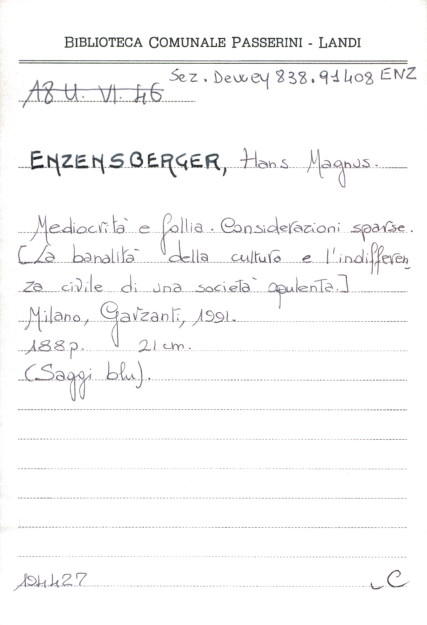 BIBLIOTECA COMUNALE PASSERINI - LANDI
Sez. Dewey 838.91408 ENZ
A8 U. VI. 46
ENZENSBERGER, Hans Magnus.
Mediocrità e follia. Considerazioni sparse.
[La banalità della cultura e l'indifferen
za civile di una società opulenta.]
Milano, Garzanti, 1991.
188 p. 21 cm.
(Saggi blu).
194427
C